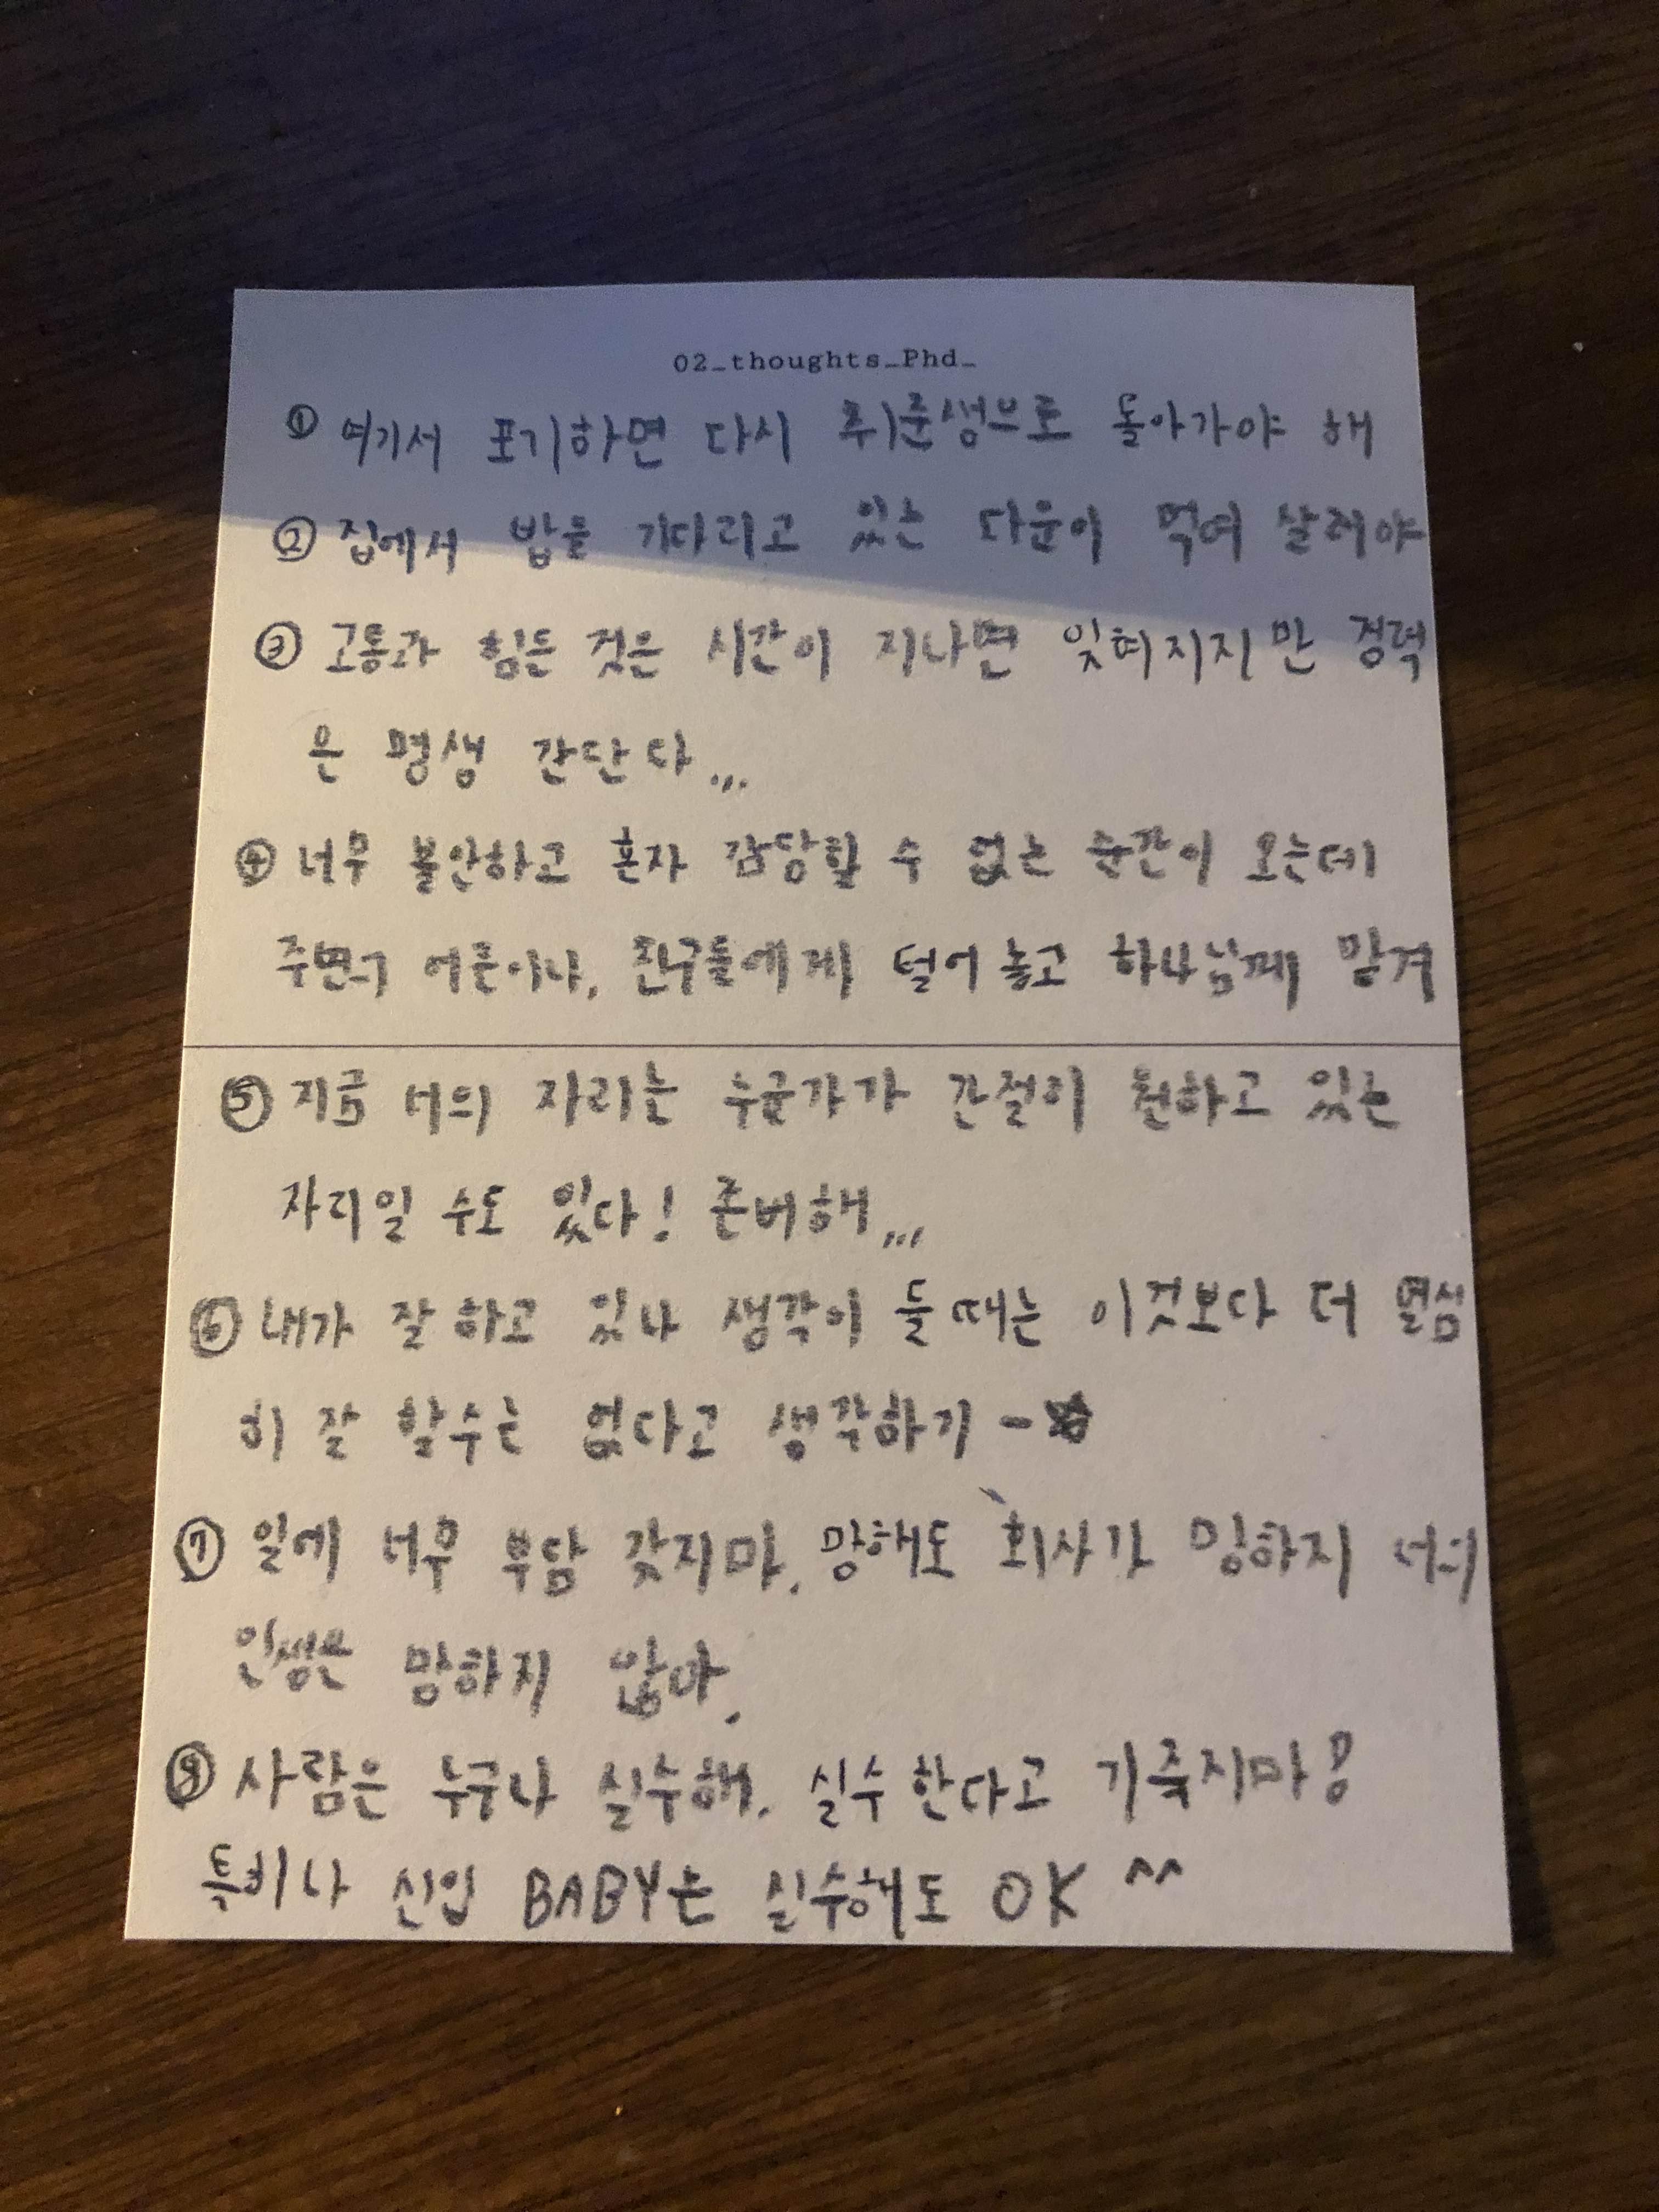 02_thoughts_Phd_
① 여기서 포기하면 다시 취준생으로 돌아가야 해
② 집에서 밥을 기다리고 있는 다운이 먹여 살려야
③ 고통과 힘든 것은 시간이 지나면 잊혀지지만 경력
은 평생 간단다...
④ 너무 불안하고 혼자 감당할 수 없는 순간이 오는데
주변 어른이나, 친구들에게 털어놓고 하나님께 맡겨
⑤ 지금 너의 자리는 누군가가 간절히 원하고 있는
자리일 수도 있다! 존버해...
⑥ 내가 잘 하고 있나 생각이 들 때는 이것보다 더 열심
히 잘 할수는 없다고 생각하기 -
⑦ 일에 너무 부담 갖지마. 망해도 회사가 망하지 너의
인생은 망하지 않아.
⑧ 사람은 누구나 실수해. 실수한다고 기죽지마!
특히나 신입 BABY는 실수해도 OK ^^